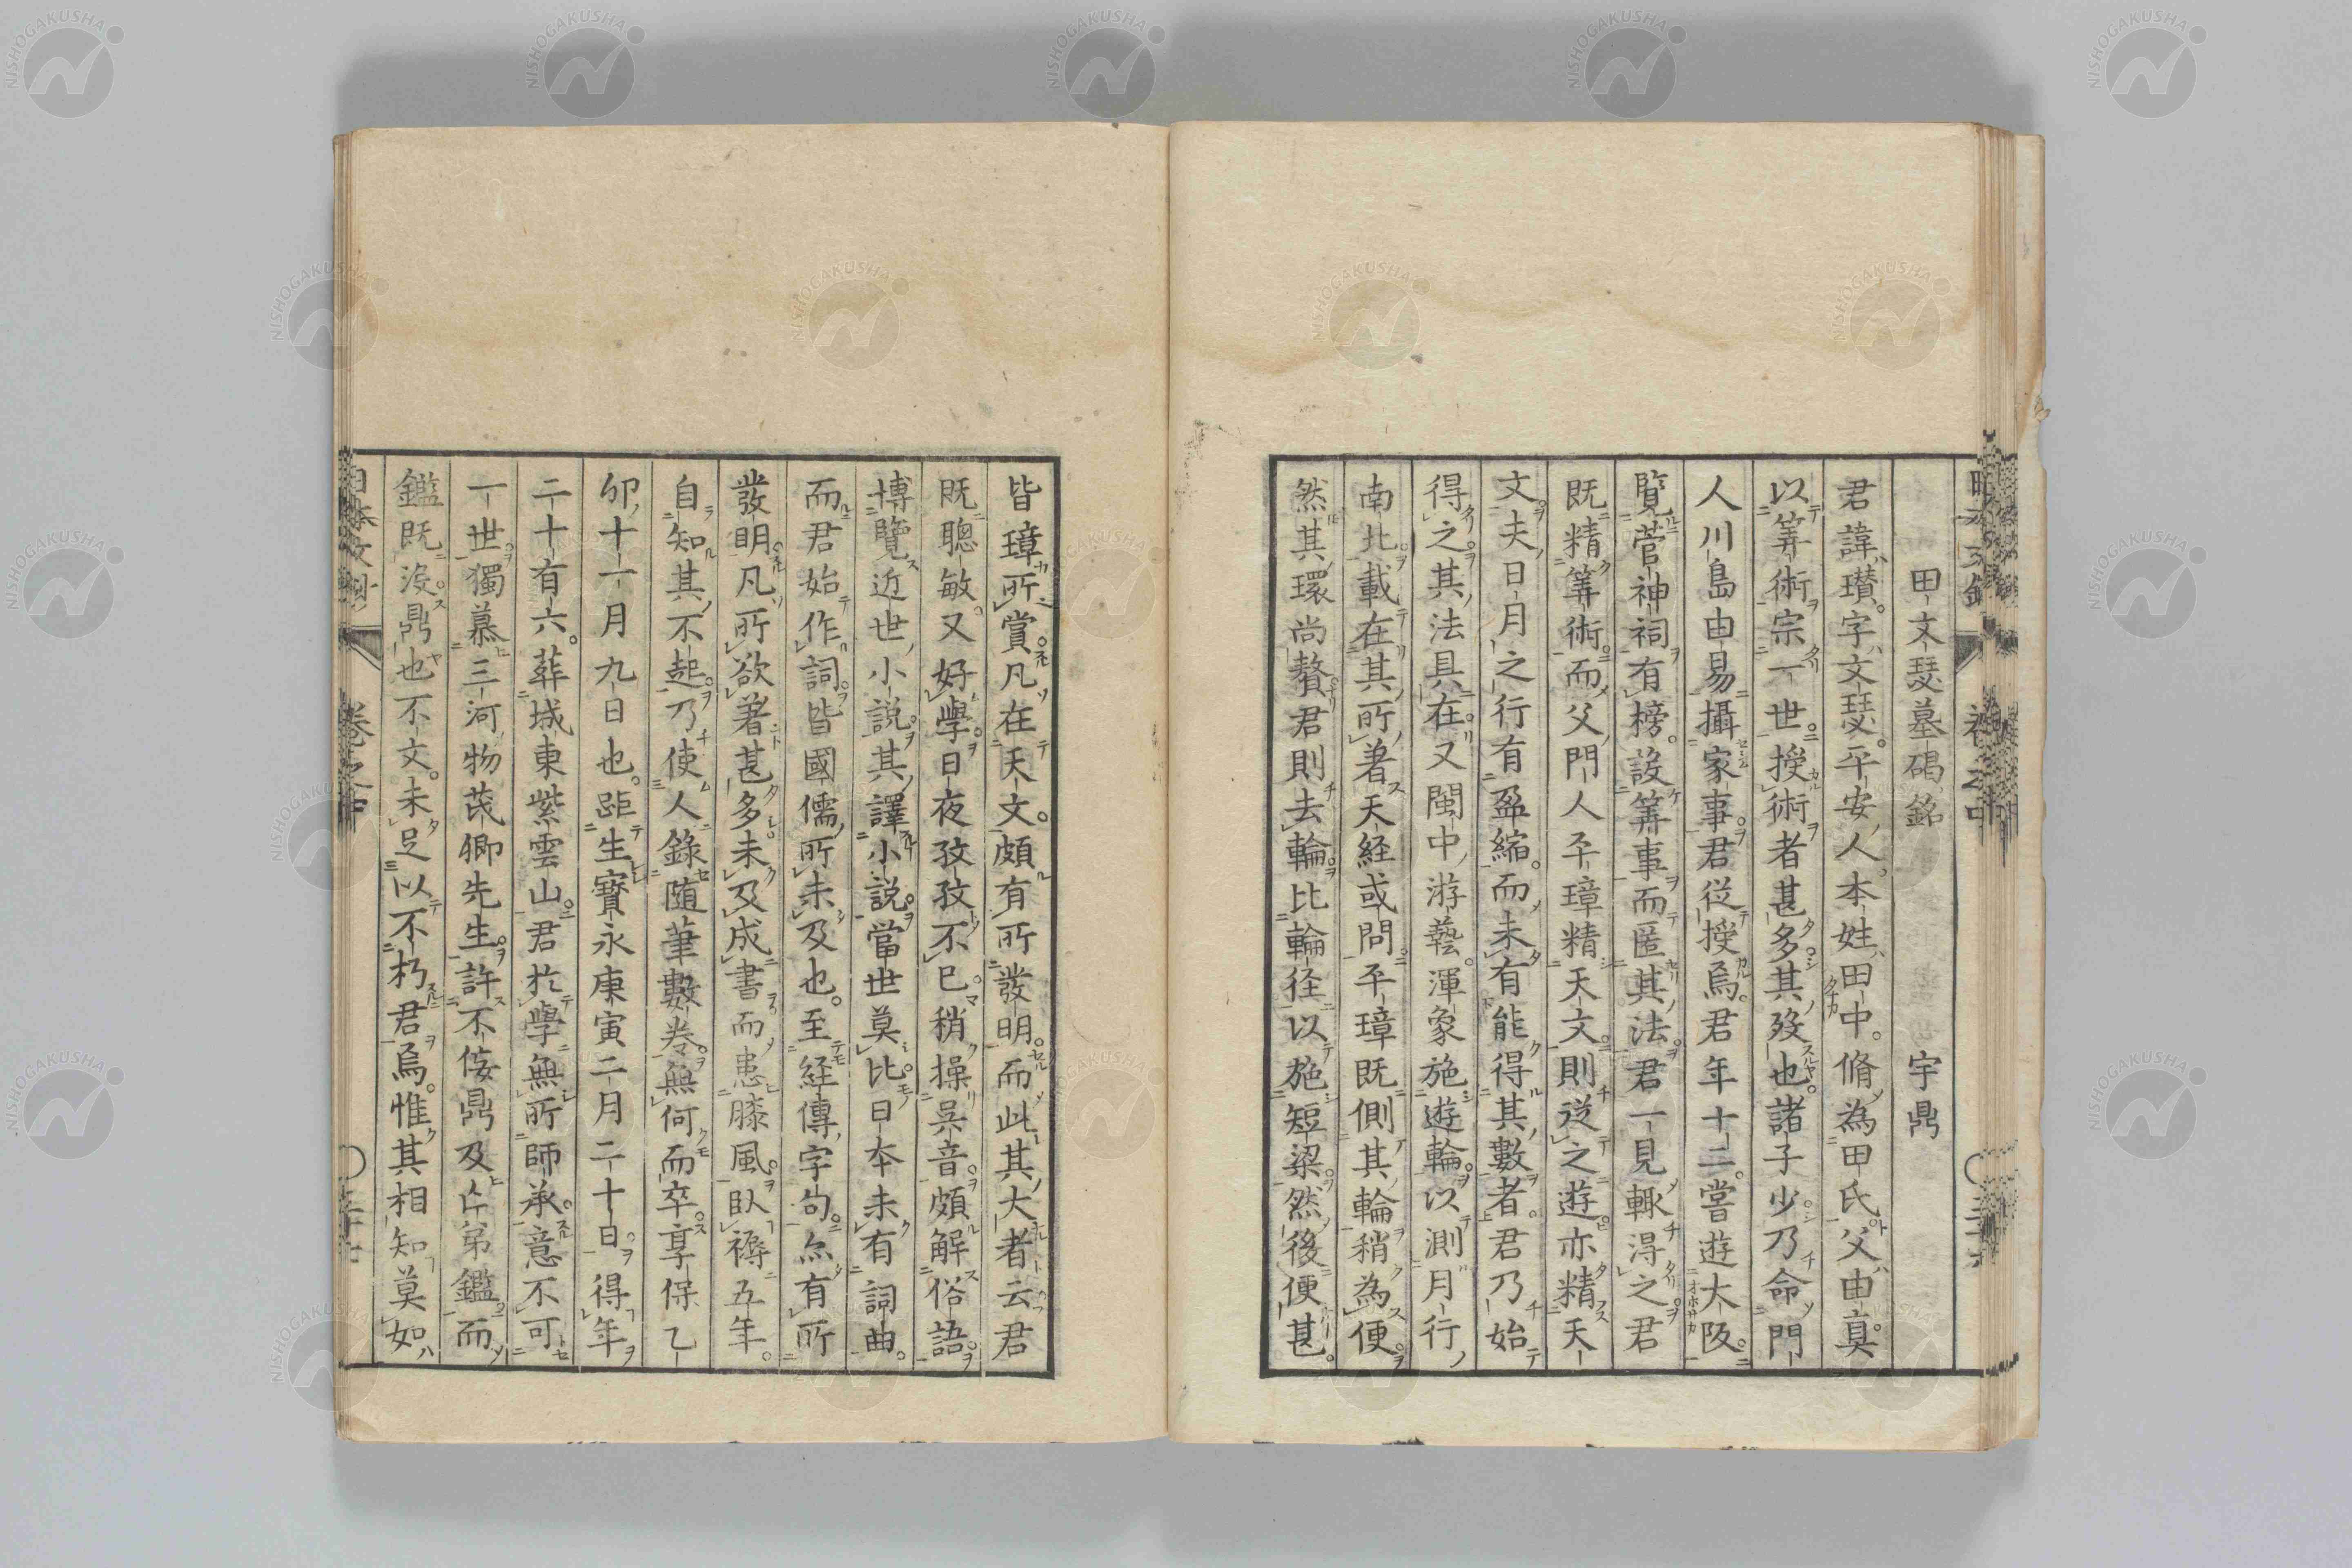 田文瑟墓碣銘　宇鼎
君諱瓚。字文瑟。平安人。本姓田中。脩為田氏。父由真
以筭術宗一世。授術者甚多。其歿也。諸子少。乃命門
人川島由易攝家事。君從授焉。君年十二。嘗遊大阪。
覽菅神祠。有榜。設筭事而匿其法。君一見輒得之。君
既精筭術。而父門人平璋精天文。則從之遊。亦精天
文。夫日月之行有盈縮。而未有能得其數者。君乃始
得之。其法具在。又閩中游藝。渾象施遊輪。以測月行
南北。載在其所著天経或問。平璋既側其輪。稍為便。
然其環尚贅。君則去輪。比輪径以施短梁。然後便甚。
皆璋所賞。凡在天文。頗有所發明。而此其大者云。君
既聰敏。又好學。日夜孜孜不已。稍操吳音。頗解俗語。
博覽近世小說。其譯小說。當世莫比。日本未有詞曲。
而君始作詞。皆國儒所未及也。至経傳字句。亦有所
發明。凡所欲著甚多。未及成書。而患膝風。臥褥五年。
自知其不起。乃使人錄随筆數卷。無何而卒。享保乙
卯十一月九日也。距生寶永庚寅二月二十日。得年
二十有六。葬城東紫雲山。君於學無所師承。意不可
一世。獨慕三河物茂卿先生。許不佞鼎及仐弟鑑。而
鑑既沒。鼎也不文。未足以不朽君焉。惟其相知莫如
卷之中